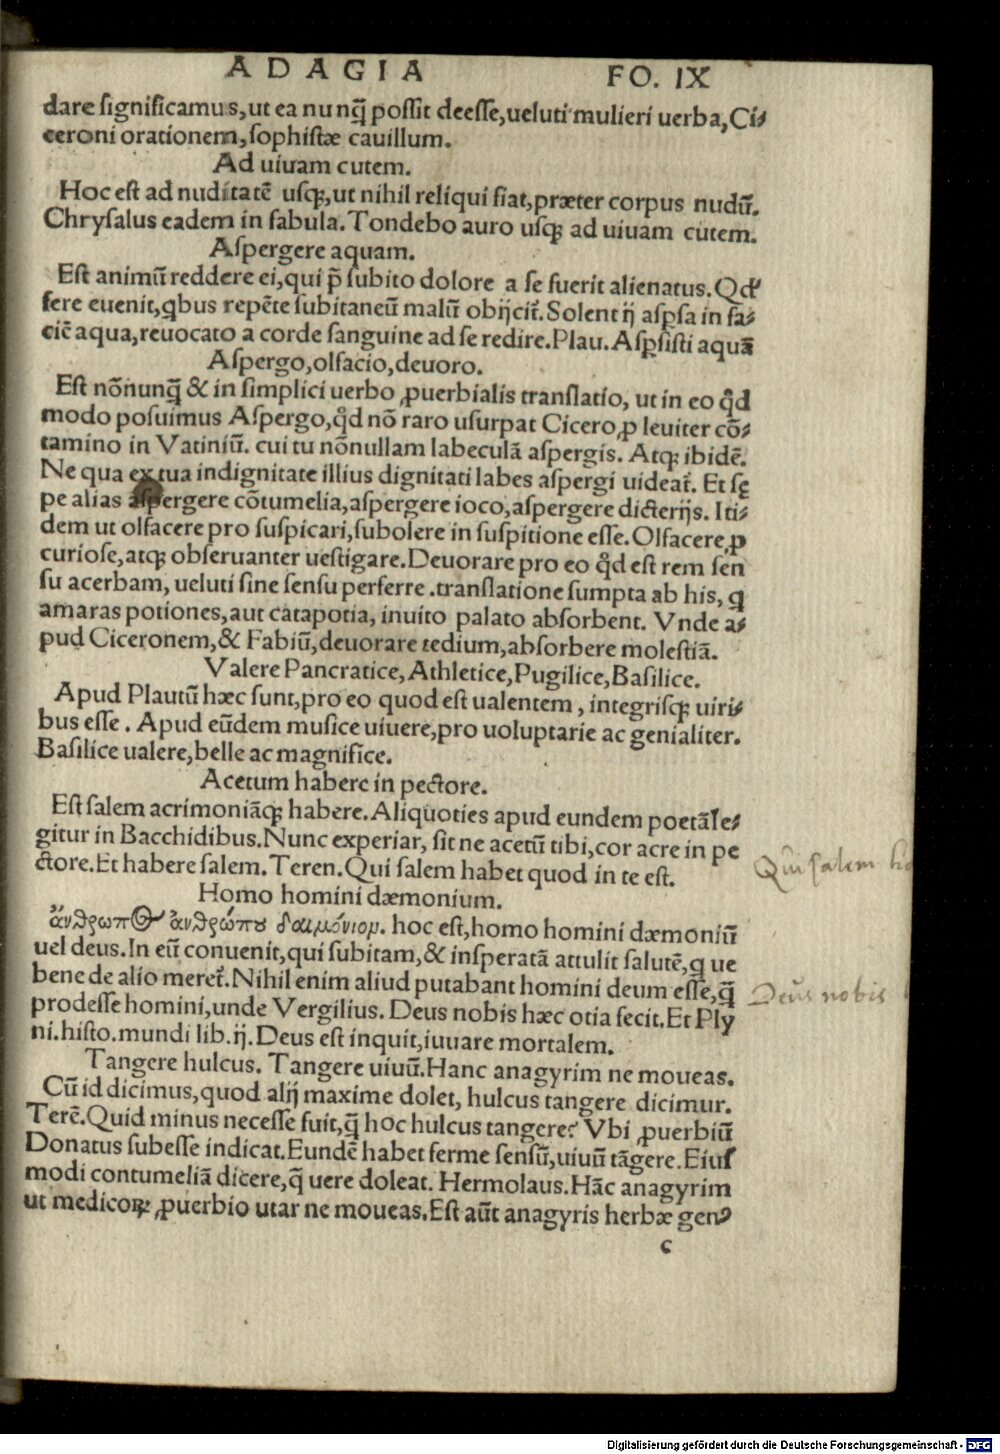 ADAGIA FO. IX
dare significamus,ut ea nunq̃ possit deesse,ueluti mulieri uerba,Ci⸗
ceroni orationem,sophistæ cauillum.
Ad uiuam cutem.
Hoc est ad nuditatē usq;,ut nihil reliqui fiat,præter corpus nudū.
Chrysalus eadem in fabula.Tondebo auro usq; ad uiuam cutem.
Aspergere aquam.
Est animū reddere ei,qui p̃ subito dolore a se fuerit alienatus.Qđ
fere euenit,qbus repēte subitaneū malū obijcit̃.Solent ij aspsa in fa⸗
ciē aqua,reuocato a corde sanguine ad se redire.Plau.Aspsisti aquā
Aspergo,olfacio,deuoro.
Est nōnunq̃ & in simplici uerbo ꝓuerbialis translatio, ut in eo qd̓
modo posuimus Aspergo,qd̓ nō raro usurpat Cicero,p leuiter cō⸗
tamino in Vatiniū. cui tu nōnullam labeculā aspergis. Atq; ibidē.
Ne qua ex tua indignitate illius dignitati labes aspergi uideat̃. Et sę
pe alias aspergere cōtumelia,aspergere ioco,aspergere dicterijs. Iti⸗
dem ut olfacere pro suspicari,subolere in suspitione esse.Olfacere,p
curiose,atq; obseruanter uestigare.Deuorare pro eo qd̓ est rem sen
su acerbam, ueluti sine sensu perferre.translatione sumpta ab his, q
amaras potiones,aut catapotia, inuito palato absorbent. Vnde a⸗
pud Ciceronem,& Fabiū,deuorare tedium,absorbere molestiā.
Valere Pancratice,Athletice,Pugilice,Basilice.
Apud Plautū hæc sunt,pro eo quod est ualentem, integrisq; uiri⸗
bus esse. Apud eūdem musice uiuere,pro uoluptarie ac genialiter.
Basilice ualere,belle ac magnifice.
Acetum habere in pectore.
Est salem acrimoniāq; habere.Aliquoties apud eundem poetā le⸗
gitur in Bacchidibus.Nunc experiar, sit ne acetū tibi,cor acre in pe
ctore.Et habere salem.Teren.Qui salem habet quod in te est.
Qui salem
Homo homini dæmonium.
ἄνθρωπος ἀνθρώπου δαιμόνιον. hoc est,homo homini dæmoniū
uel deus.In eū conuenit,qui subitam,& insperatā attulit salutē,q ue
bene de alio meret̃.Nihil enim aliud putabant homini deum esse,q̃
prodesse homini,unde Vergilius. Deus nobis hæc otia fecit.Et Ply
Deus nobis
ni.histo.mundi lib.ij.Deus est inquit,iuuare mortalem.
Tangere hulcus. Tangere uiuū.Hanc anagyrim ne moueas.
Cū id dicimus,quod alij maxime dolet, hulcus tangere dicimur.
Terē.Quid minus necesse fuit,q̃ hoc hulcus tangere? Vbi ꝓuerbiū
Donatus subesse indicat.Eundē habet ferme sensū,uiuū tāgere.Eius
modi contumeliā dicere,q̃ uere doleat. Hermolaus.Hāc anagyrim
ut medicoꝝ ꝓuerbio utar ne moueas.Est aūt anagyris herbæ gen⁹
c
Digitalisierung gefördert durch die Deutsche Forschungsgemeinschaft - DFG